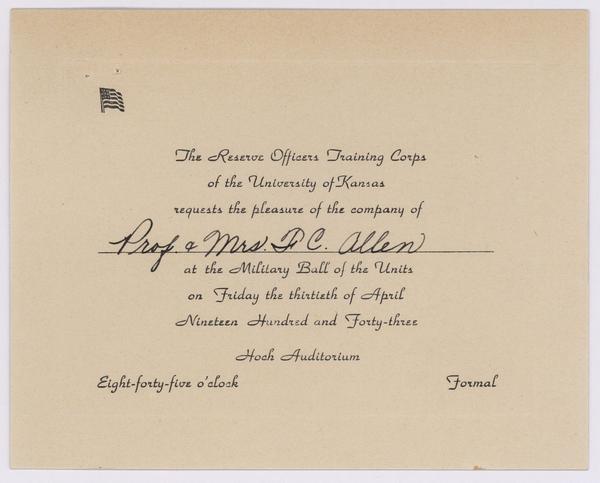 The Reserve Officers Training Corps
of the University of Kansas
requests the pleasure of the company of
Prof. & Mrs. F C. Allen
at the Military Ball of the Units
on Friday the thirtieth of April
Nineteen Hundred and Forty-three
Hoch Auditorium
Eight-forty-five o'clock Formal